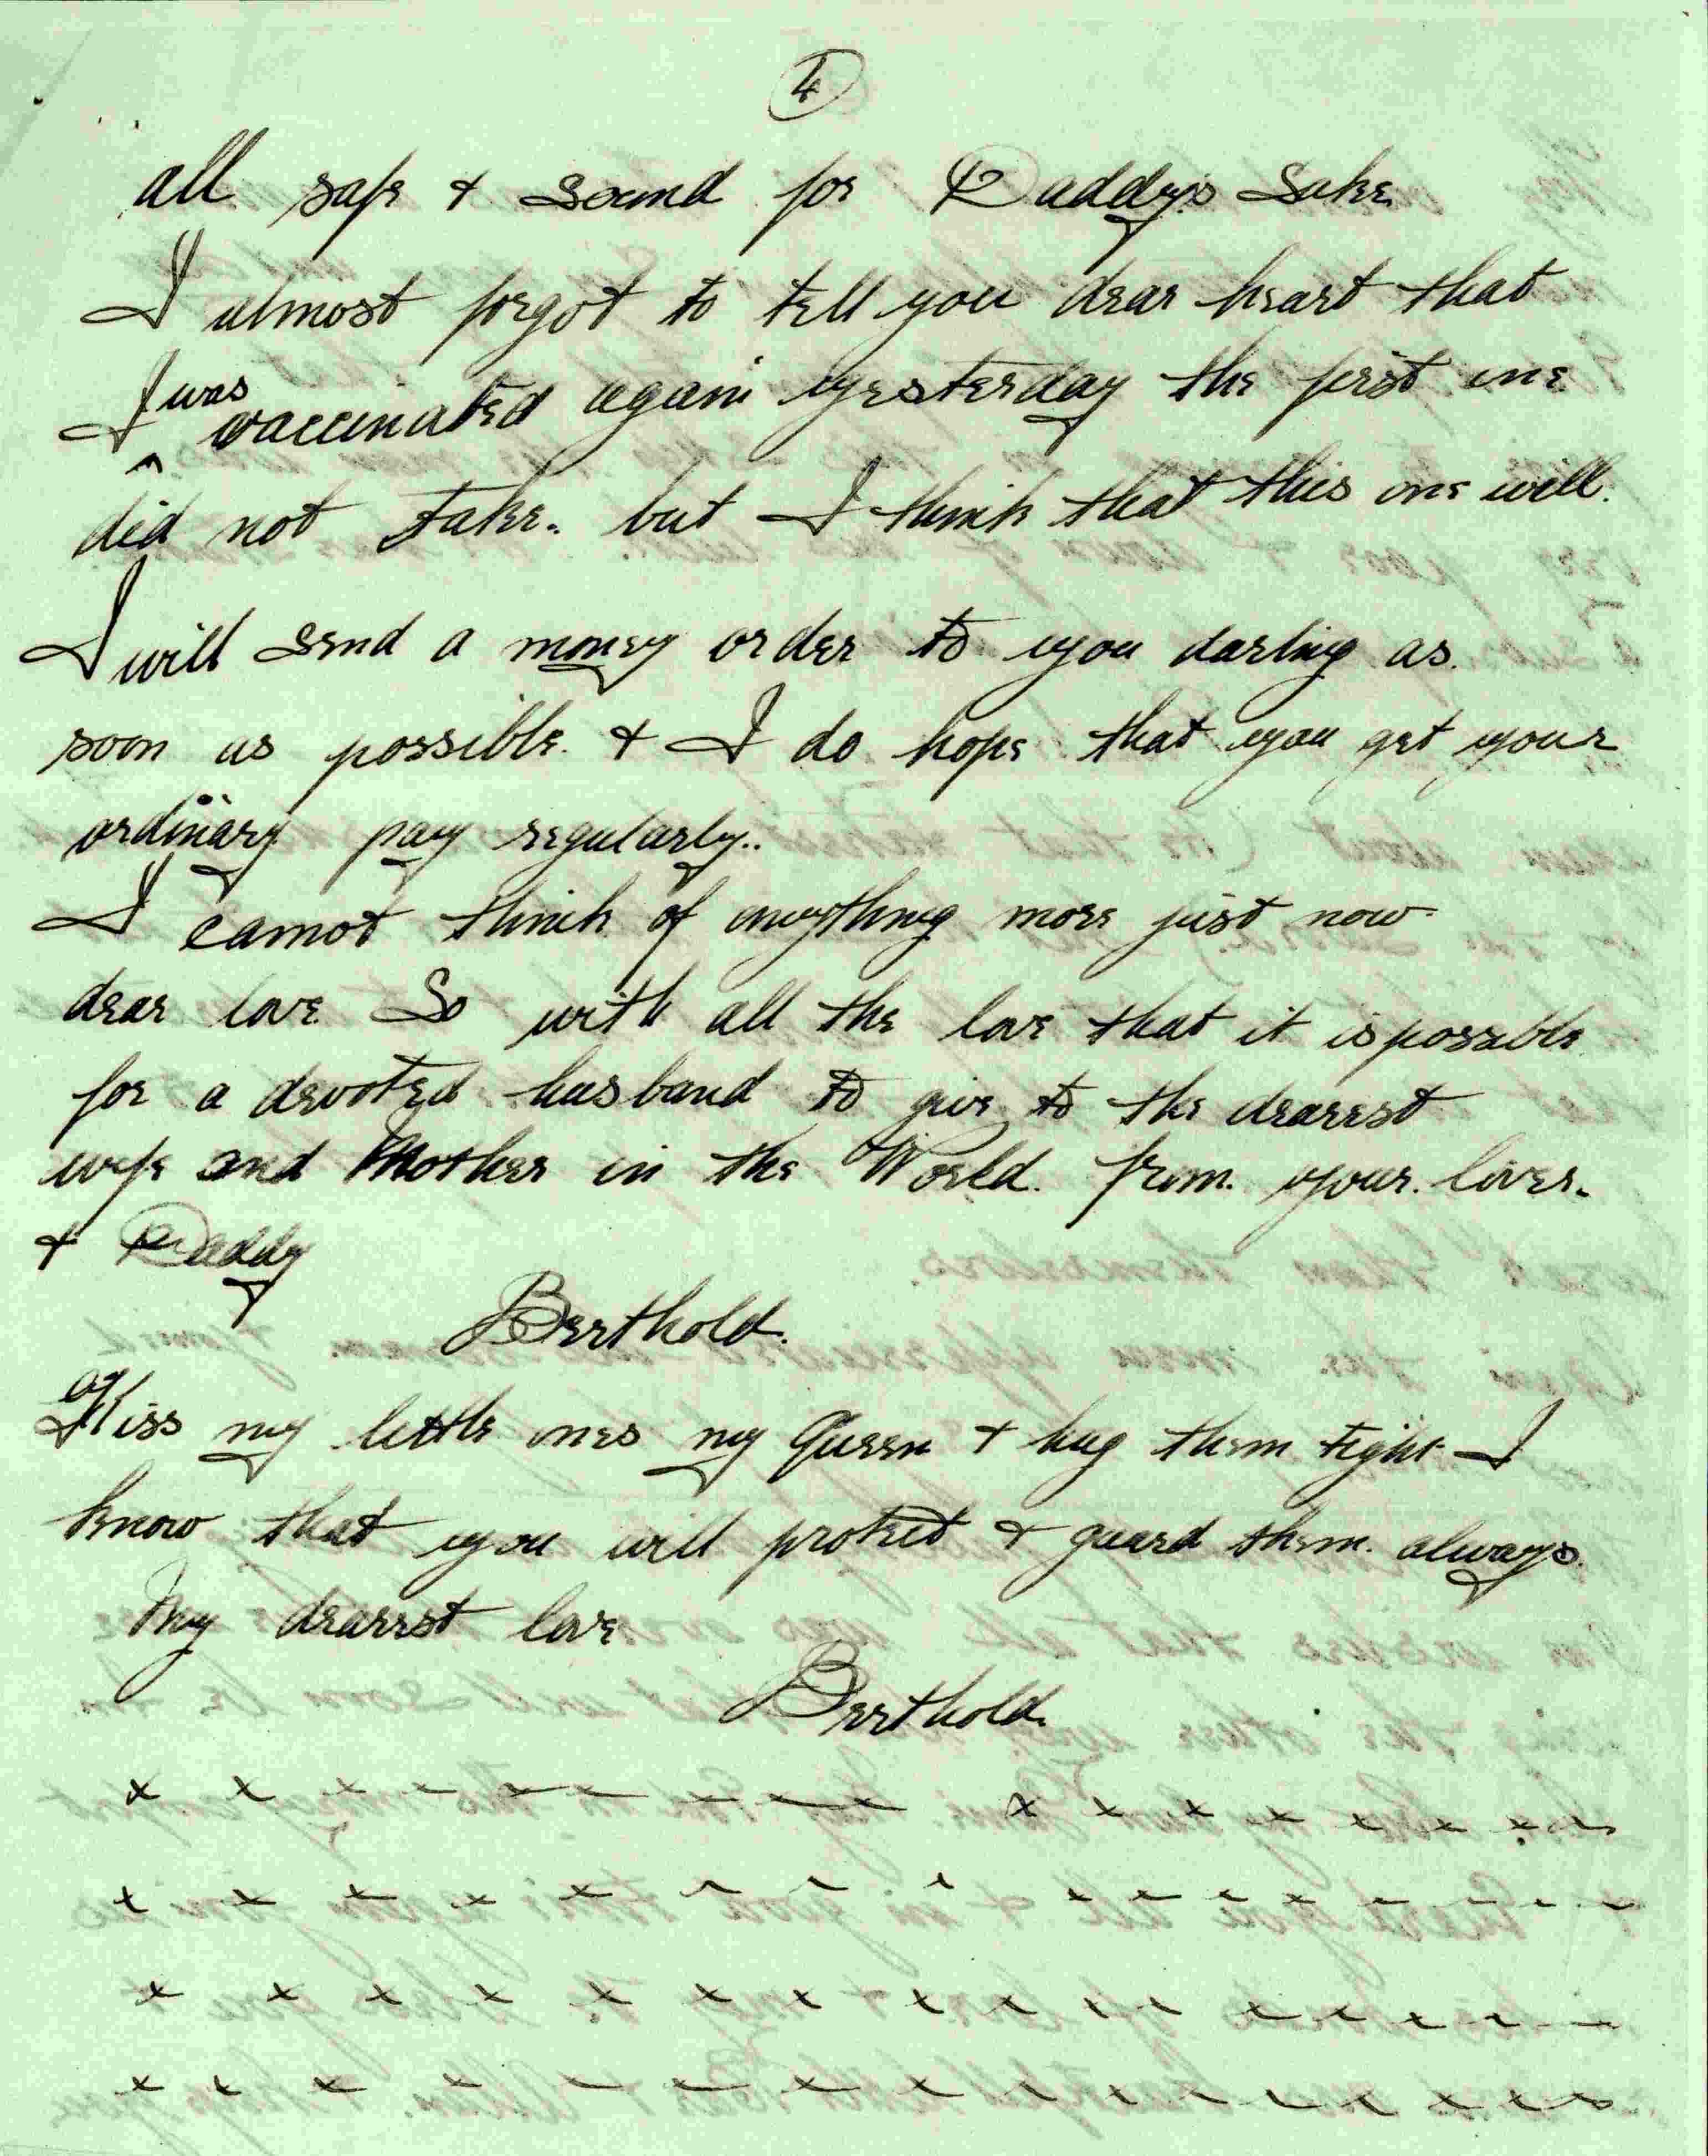 4
all safe + sound for Daddy's Sake
I almost forgot to tell you dear heart that
I was vaccinated again yesterday the first one
did not take. but I think that this one will.
I will send a money order to you darling as
soon as possible. + I do hope that you get your
ordinary pay regularly..
I cannot think of anything more just now
dear love So with all the love that it is possible
for a devoted husband to give to the dearest
wife and Mother in the World. from your lover.
+ Daddy
Berthold.
Kiss my little ones my Queen + hug them tight I
know that you will protect + guard them always.
My dearest love
Berthold.
x x x x x x x x x x x x x x x x
x x x x x x x x x x x x x x x x
x x x x x x x x x x x x x x x x
x x x x x x x x x x x x x x x x